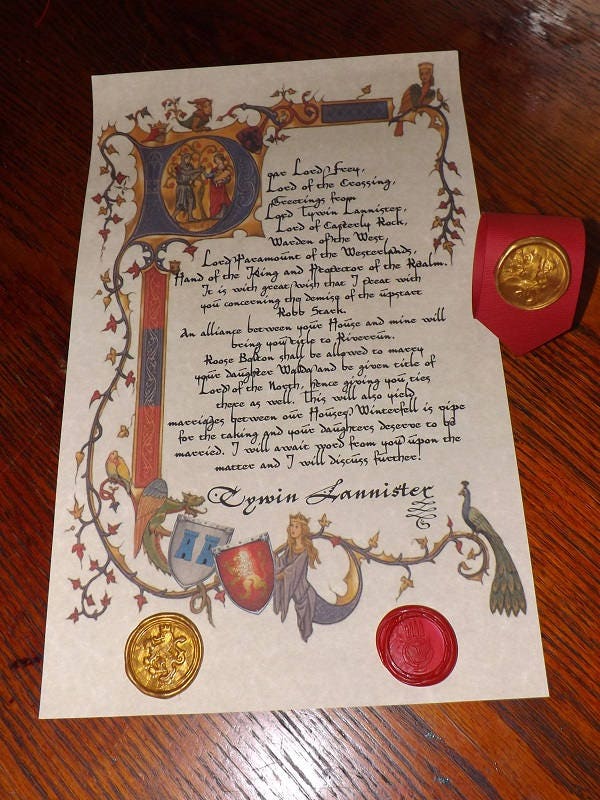 Dear Lord Frey,
Lord of the Crossing,
Greetings from
Lord Tywin Lannister,
Lord of Casterly Rock,
Warden of the West,
Lord Paramount of the Westerlands,
Hand of the King and Protector of the Realm.
It is with great wish that I treat with
you concerning the demise of the upstart
Robb Stark.
An alliance between your House and mine will
bring you title to Riverrun.
Roose Bolton shall be allowed to marry
your daughter Walda and be given title of
Lord of the North, hence giving you ties
there as well. This will also yield
marriages between our Houses, Winterfell is ripe
for the taking and your daughters deserve to be
married. I will await word from you upon the
matter and I will discuss further!
Tywin Lannister